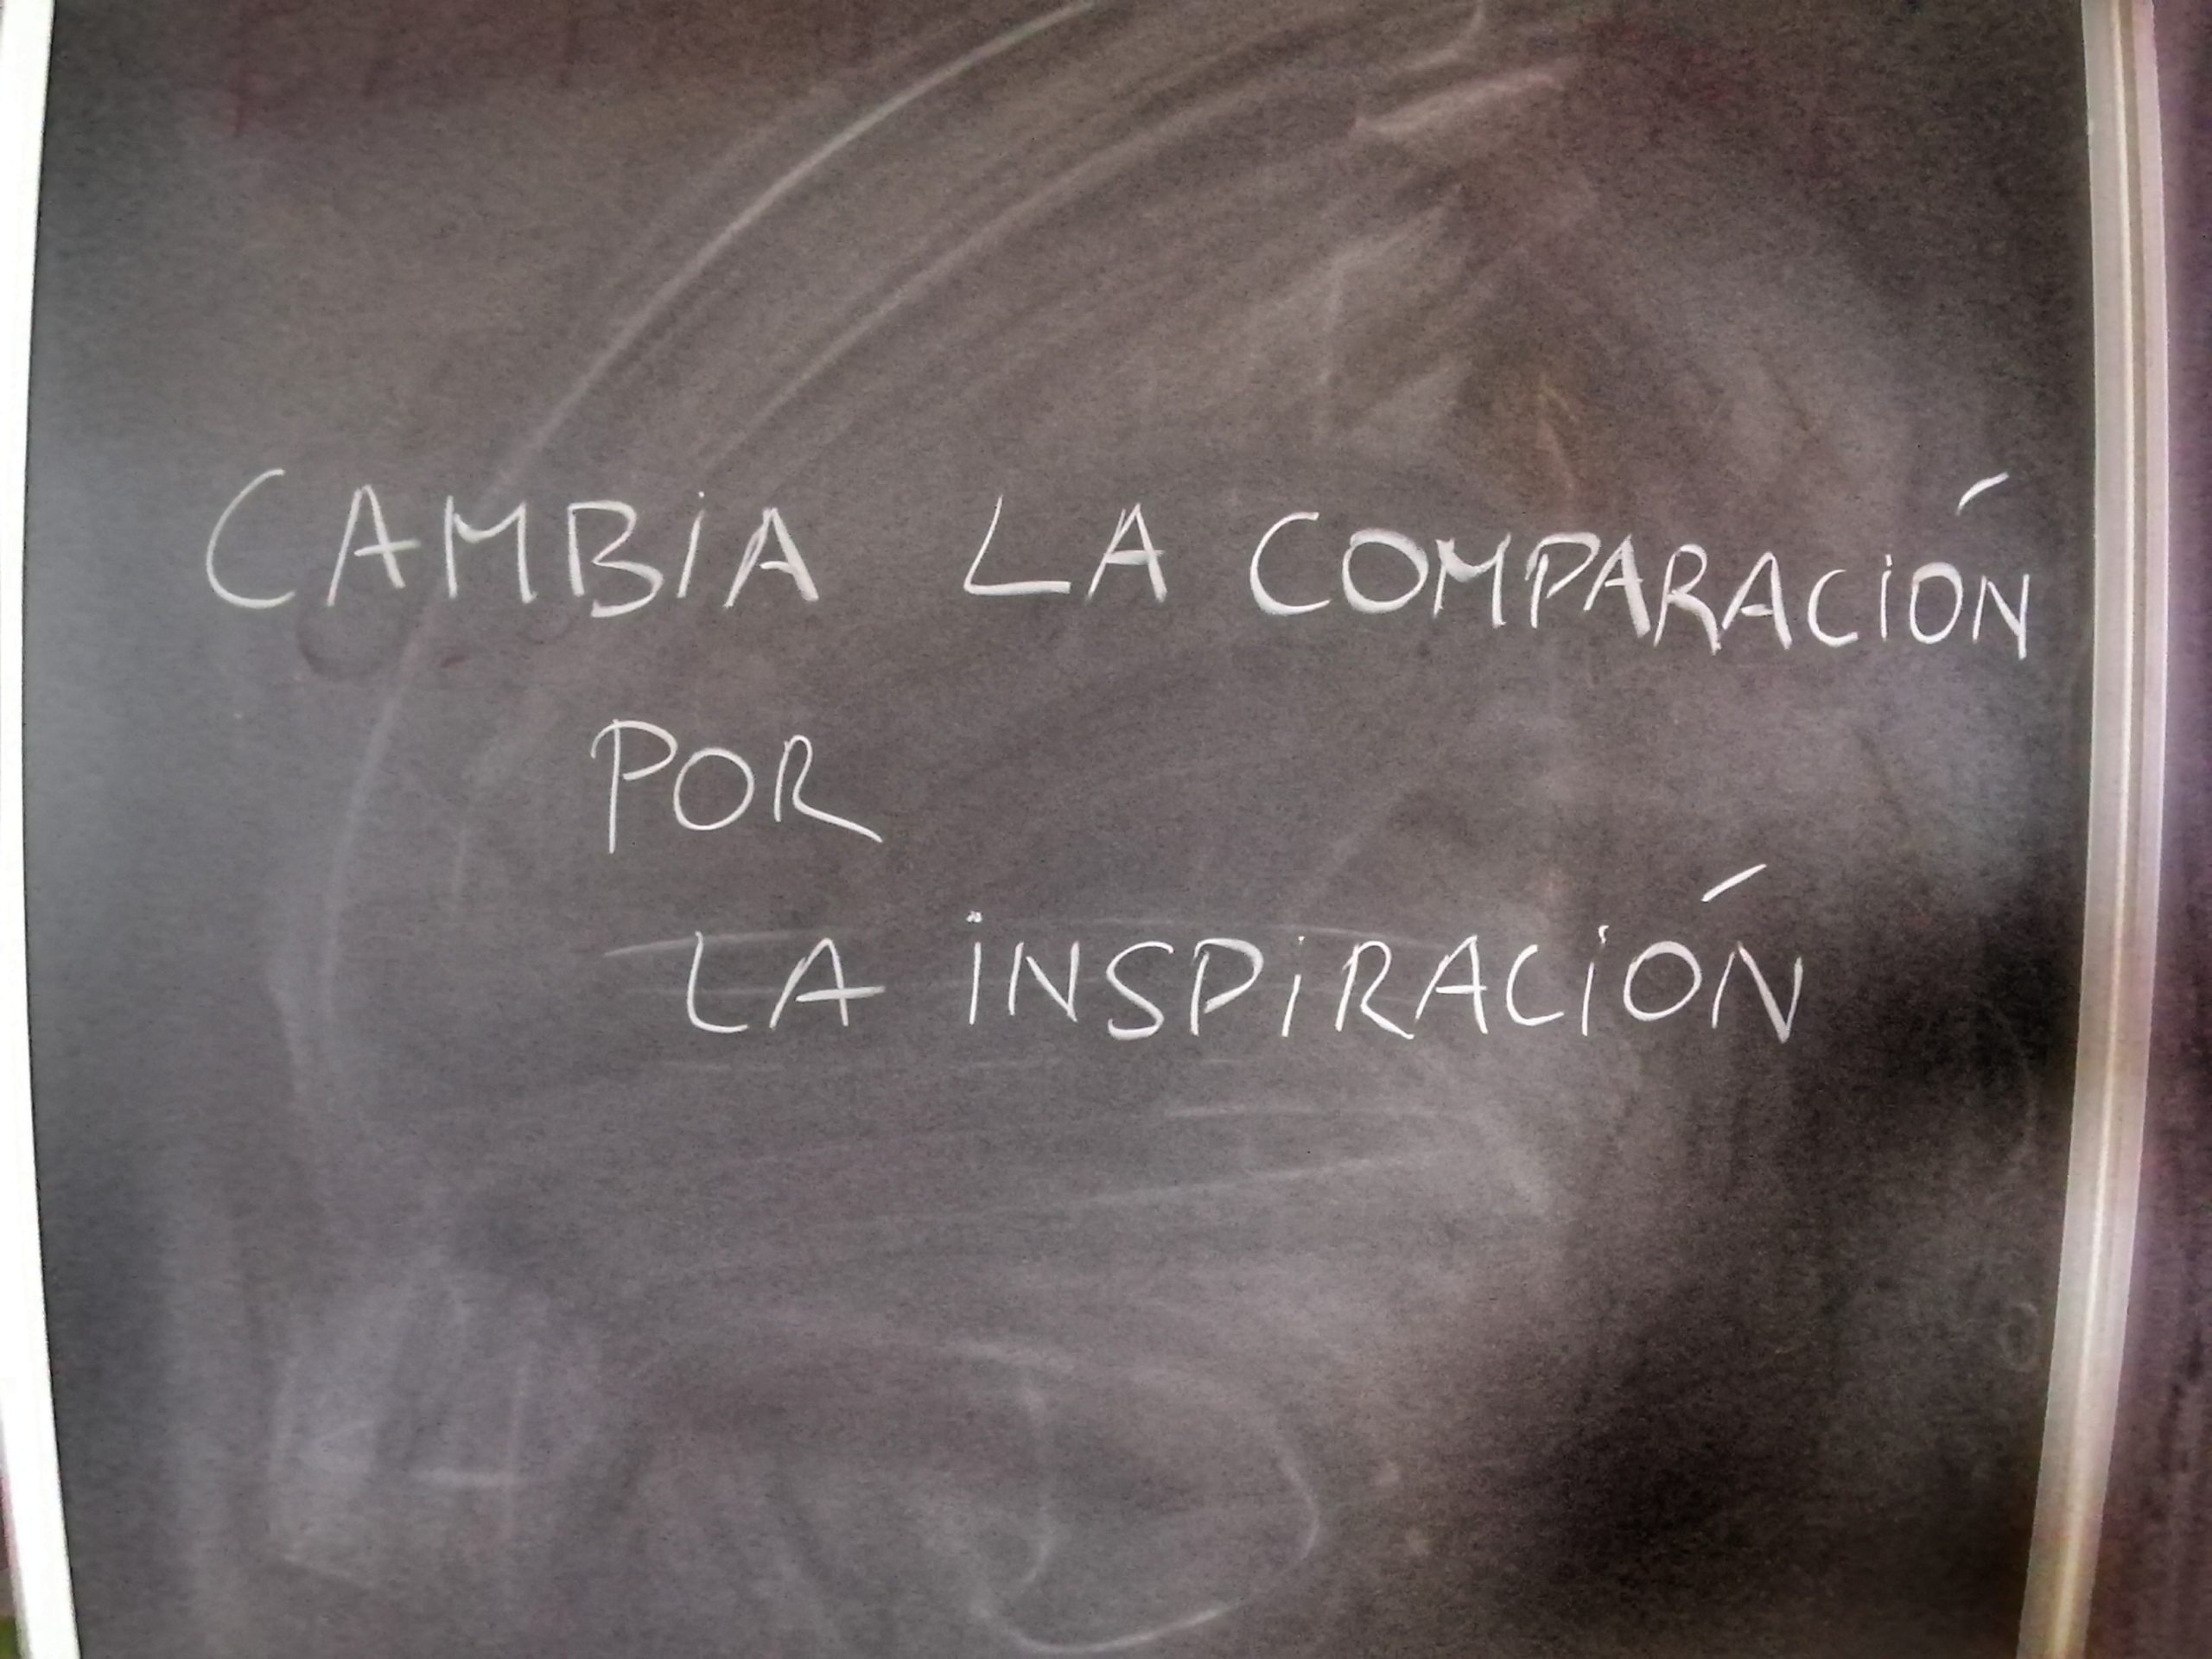 CAMBIA LA COMPARACIÓN
POR
LA INSPIRACIÓN